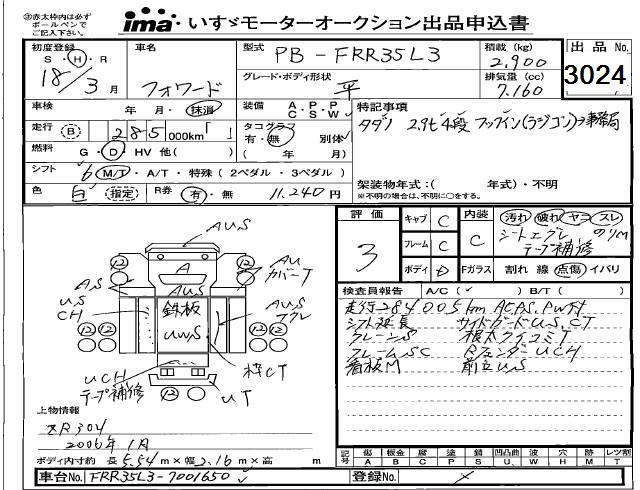 ㊟赤太枠内は必ず
ボールペンで
ご記入下さい。
ima いすゞモーターオークション出品申込書
初度登録
S・H・R
18/3月
車名
フォワード
型式
PB-FRR35L3
グレード・ボディ形状
平
積載(kg)
2,900
排気量(cc)
7,160
出品No.
3024
車検
年 月・抹消
装備
A・P・P
C・S・W
特記事項
タダノ 2.9t 4段 フックイン(ラジコン)
走行(B)
285000km「 」
タコグラフ
有・無 別体
( 年 月)
燃料
G・D・HV 他( )
シフト
6 M/T・A/T・特殊(2ペダル・3ペダル)
架装物年式:( 年式)・不明
※不明の場合は、不明に○をする。
色
白 (指定)
R券
有・無
11,240円
評価
3
キャブ C
フレーム C
ボディ D
内装
C
汚れ 破れ ヤニ スレ
シートエグレ のりM
テープ補修
Fガラス
割れ 線 点傷 イバリ
AUS
A
AS
US
CH
鉄板
UWS
AU
カバーT
AUS
フクレ
枠CT
UCH
テープ補修
UT
12
検査員報告 A/C(✓) B/T( )
走行284005km AC,PS,PW付
シフト延長 サイドガードUS,CT
クレーンS 根太クイコミT
フレームSC RフェンダーUCH
看板M 前立US
上物情報
ZR304
2006年1月
ボディ内寸約 長5.54m×幅2.16m×高 m
記号
傷 板金 凹 腐 塗 錆 凹凸曲 波 穴 ハガレ 要 ワレ 四 レツ打
A B C C P S U W H X
車台No.
FRR35L3-7001650
登録No.